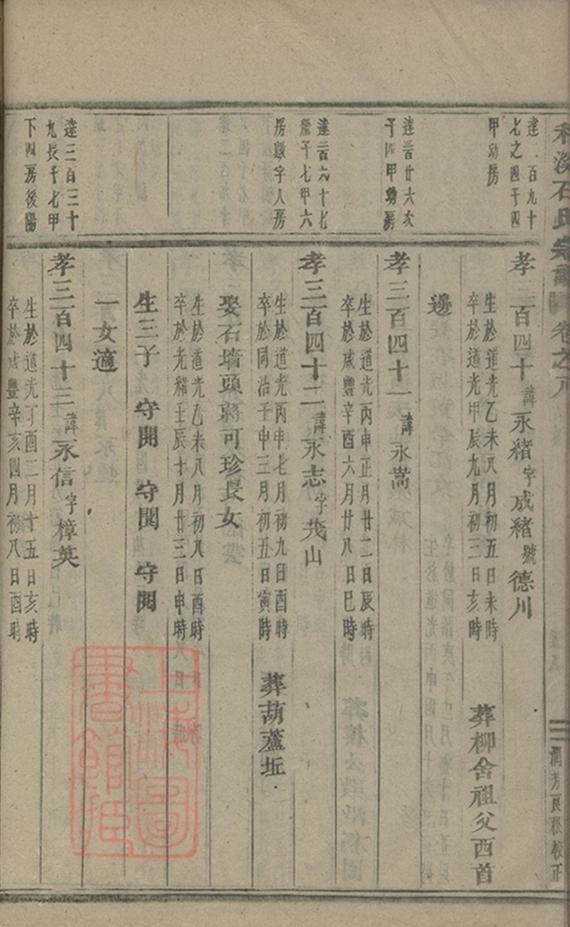 石氏宗譜
卷之八
達一百九十
七之四千四
甲幼房
孝三百四十諱永緒字成緒號德川
生於道光乙未八月初五日未時
卒於道光甲辰九月初三日亥時
葬柳舍祖父西首
達二百廿六次
子四甲幼房
孝三百四十一諱永嵩
邊
生於道光丙申正月廿二日辰時
卒於咸豐辛酉六月廿八日巳時
達二百六十七
千七甲六
房字人房
孝三百四十二諱永志字茂山
生於道光丙申七月初九日酉時
卒於同治壬申三月初五日寅時
葬葫蘆坵
娶石墙頭郭可珍長女
生於道光乙未八月初八日酉時
卒於光緒壬辰十月廿三日申時
生三子 守開 守閏 守閱
一女適
達三百三十
九長千七甲
下四房後陽
孝三百四十三諱永信字樟英
生於道光丁酉二月十五日亥時
卒於咸豐辛亥四月初八日酉時
上海圖書館藏